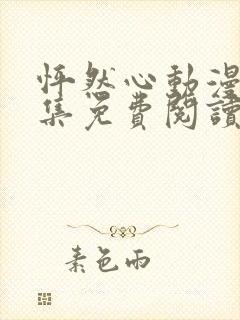 怦然心動漫
集免費閱讀
素色雨